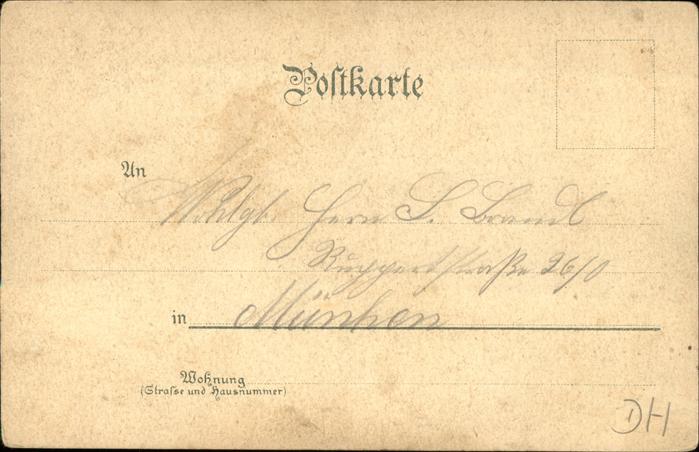 Postkarte
An
Wohlgb. Herrn S. Brandl
Ruppertstraße 26/0
in München
Wohnung
(Strasse und Hausnummer)
DH